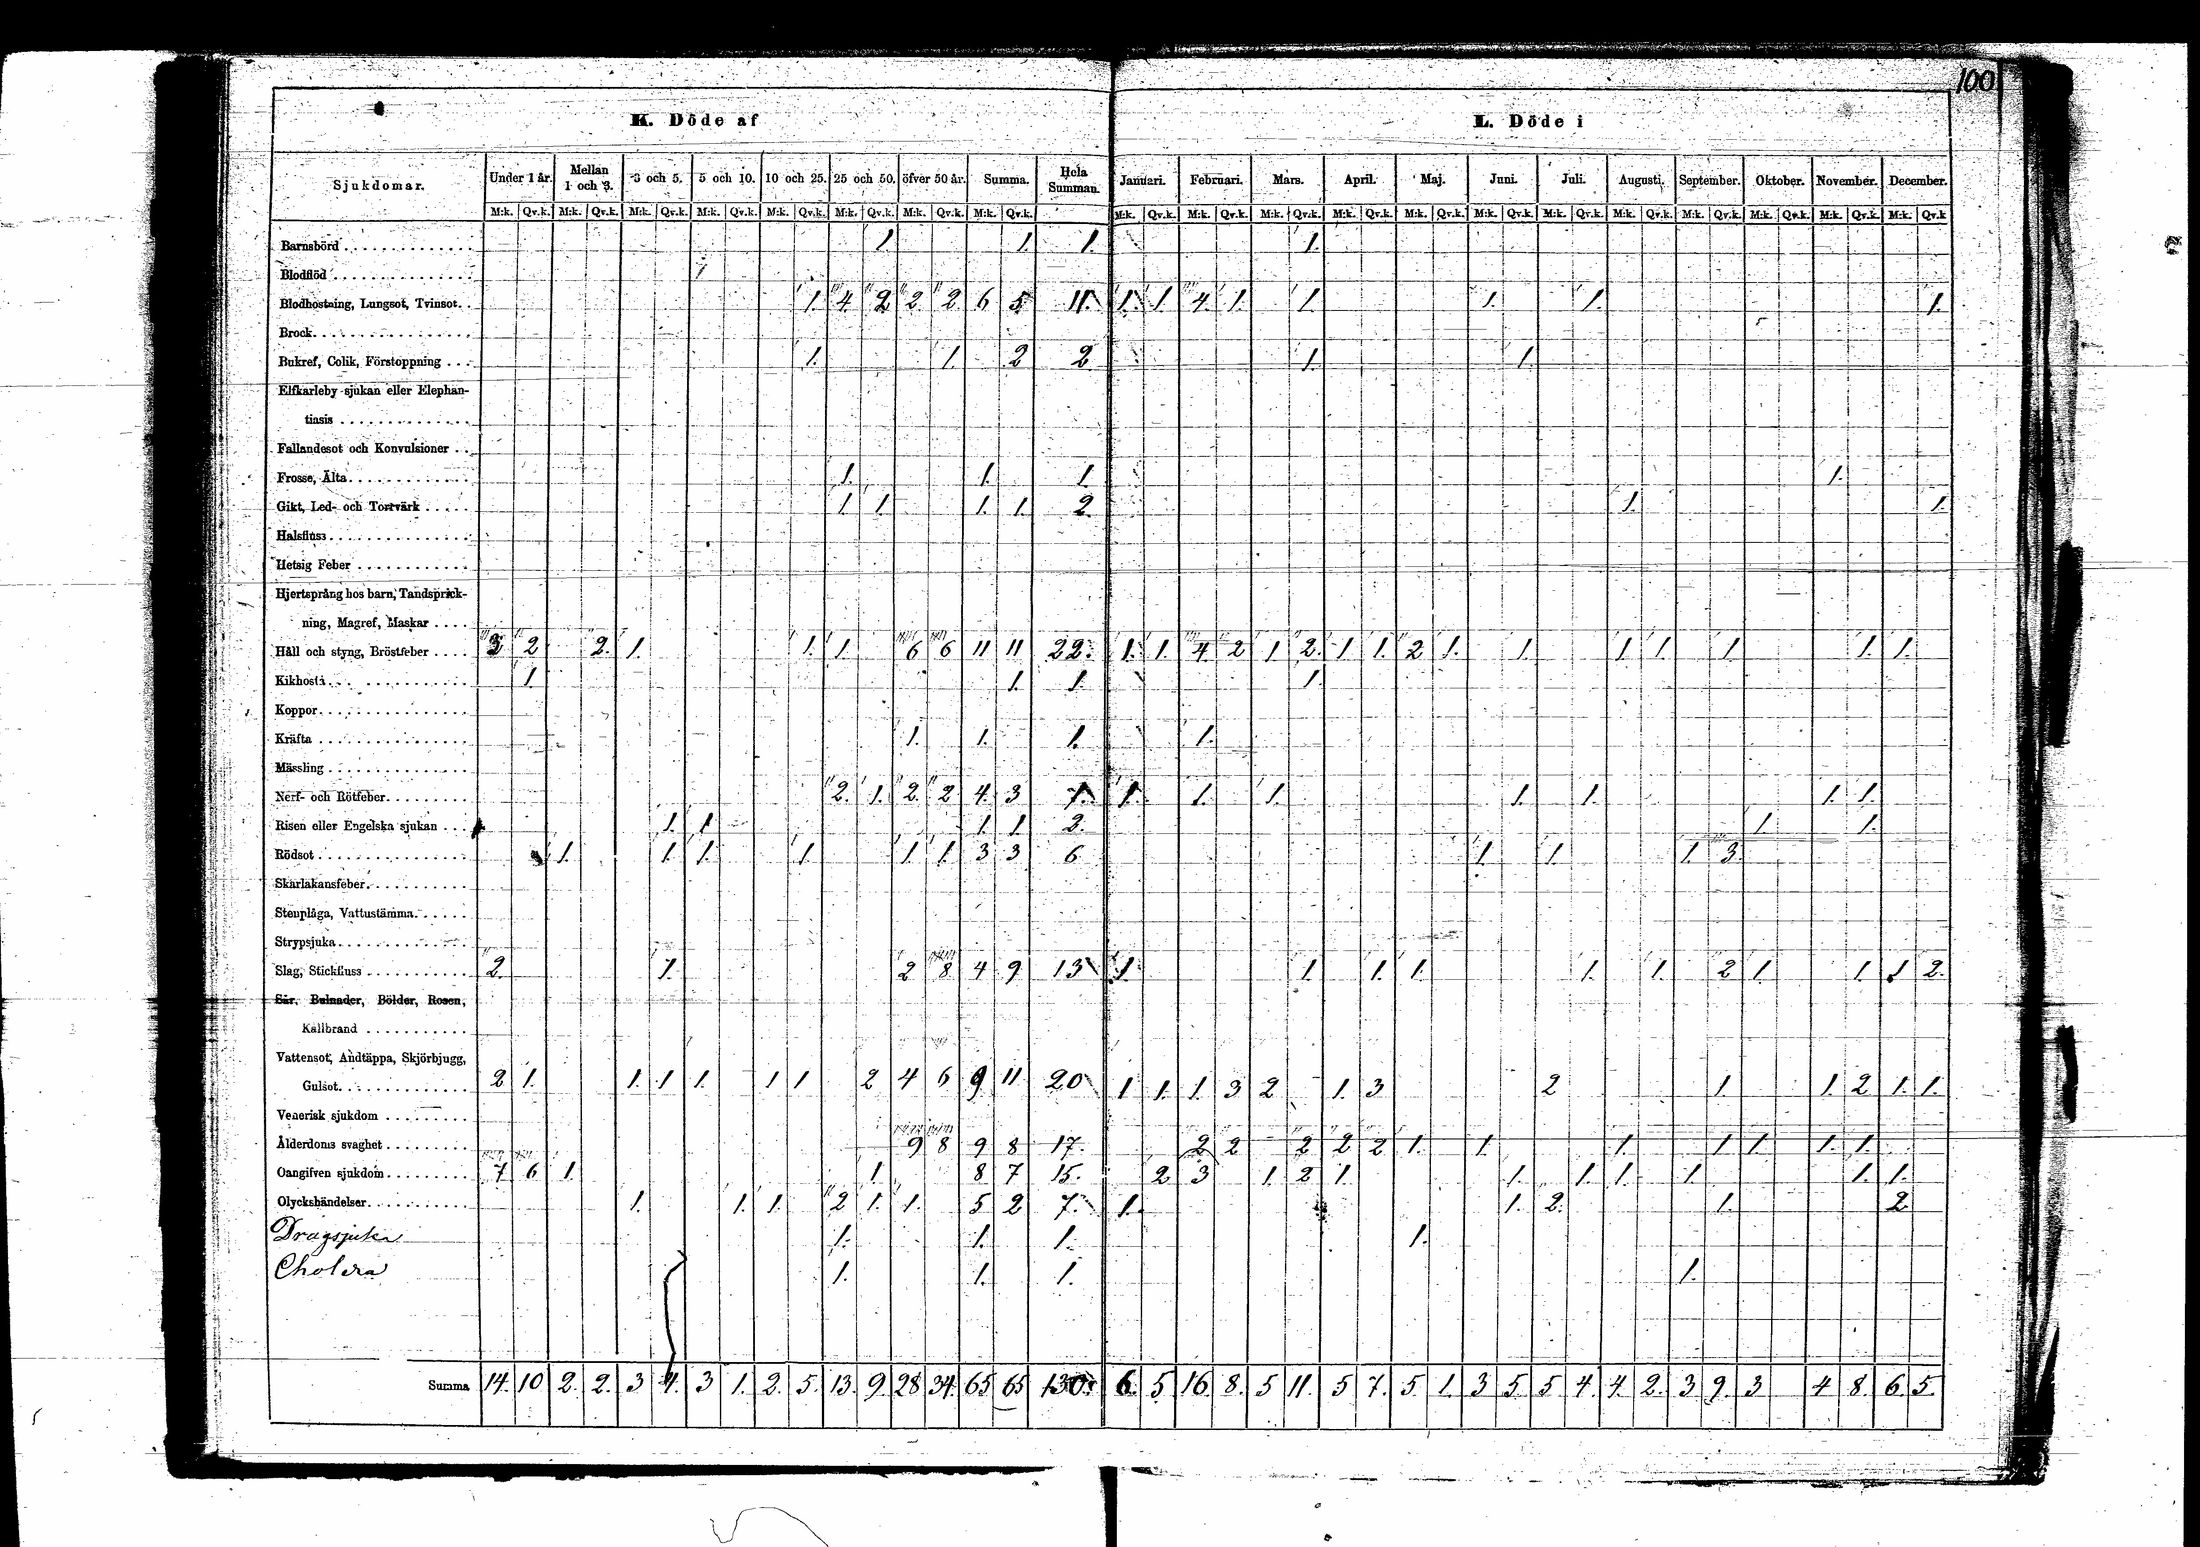 100
K. Döde af L. Döde i
Sjukdomar. Under 1 år. Mellan 1 och 3. 3 och 5. 5 och 10. 10 och 25. 25 och 50. öfver 50 år. Summa. Hela Summan. Januari. Februari. Mars. April. Maj. Juni. Juli. Augusti. September. Oktober. November. December.
M:k. Qv.k. M:k. Qv.k. M:k. Qv.k. M:k. Qv.k. M:k. Qv.k. M:k. Qv.k. M:k. Qv.k. M:k. Qv.k. M:k. Qv.k. M:k. Qv.k. M:k. Qv.k. M:k. Qv.k. M:k. Qv.k. M:k. Qv.k. M:k. Qv.k. M:k. Qv.k. M:k. Qv.k. M:k. Qv.k. M:k. Qv.k. M:k. Qv.k
Barnsbörd 1 1. 1. 1.
Blodflöd
Blodhostning, Lungsot, Tvinsot. 1. 4. 2 2. 2 6 5 11. 1. 1. 4. 1. 1. 1. 1. 1.
Brock
Bukref, Colik, Förstoppning 1. 1. 2 2 1. 1.
Elfkarleby-sjukan eller Elephan-
tiasis
Fallandesot och Konvulsioner
Frosse, Älta 1. 1. 1. 1.
Gikt, Led- och Torrvärk 1. 1. 1. 1. 2. 1. 1.
Halsfluss
Hetsig Feber
Hjertsprång hos barn, Tandsprick-
ning, Magref, Maskar
Håll och styng, Bröstfeber 3 2 2. 1. 1. 1. 6 6 11 11 22. 1. 1. 4. 2 1 2. 1 1. 2 1. 1. 1 1. 1. 1. 1.
Kikhosta 1. 1. 1. 1.
Koppor
Kräfta 1. 1. 1. 1.
Mässling
Nerf- och Rötfeber 2. 1. 2. 2 4. 3 7. 1. 1. 1. 1. 1. 1. 1.
Risen eller Engelska sjukan 1. 1 1. 1 2. 1. 1.
Rödsot 1. 1. 1. 1. 1. 1. 3 3 6 1. 1. 1. 3.
Skarlakansfeber
Stenplåga, Vattustämma
Strypsjuka
Slag, Stickfluss 2. 1. 2 8 4 9 13 1. 1. 1. 1. 1. 1. 2 1. 1. 1 2.
Sår, Bulnader, Bölder, Rosen,
Kallbrand
Vattensot, Andtäppa, Skjörbjugg,
Gulsot 2 1. 1. 1 1. 1 1 2 4 6 9 11 20 1 1. 1. 3 2 1. 3 2 1. 1. 2 1. 1.
Venerisk sjukdom
Ålderdoms svaghet 9 8 9 8 17. 2 2 2 2 2 1. 1. 1. 1 1 1. 1.
Oangifven sjukdom 7 6 1. 1. 8 7 15. 2 3 1. 2 1. 1. 1. 1. 1. 1. 1.
Olyckshändelser 1. 1. 1. 2 1. 1. 5 2 7. 1. 1. 2. 1. 2.
Dragsjuka 1. 1. 1. 1.
Cholera 1. 1. 1. 1.
Summa 14. 10 2. 2. 3 4. 3 1. 2. 5. 13. 9. 28 34. 65 65 130. 6. 5. 16. 8. 5 11. 5 7. 5. 1. 3 5. 5 4. 4. 2. 3 9. 3 4 8. 6. 5.